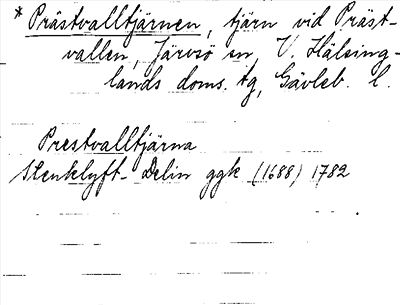 * Prästvalltjärnen, tjärn vid Präst-
vallen, Järvsö sn V. Hälsing-
lands doms. tg, Gävleb. l.
Prestvalltjärna
Stenklyft- Delin ggk (1688) 1782